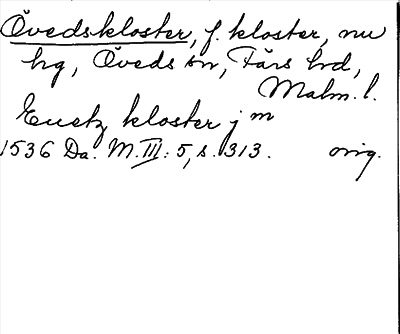 Övedskloster, f. kloster, nu
hg, Öveds sn, Färs hd,
Malm. l.
Euetz kloster j m
1536 Da. M. III: 5, s. 313. orig.